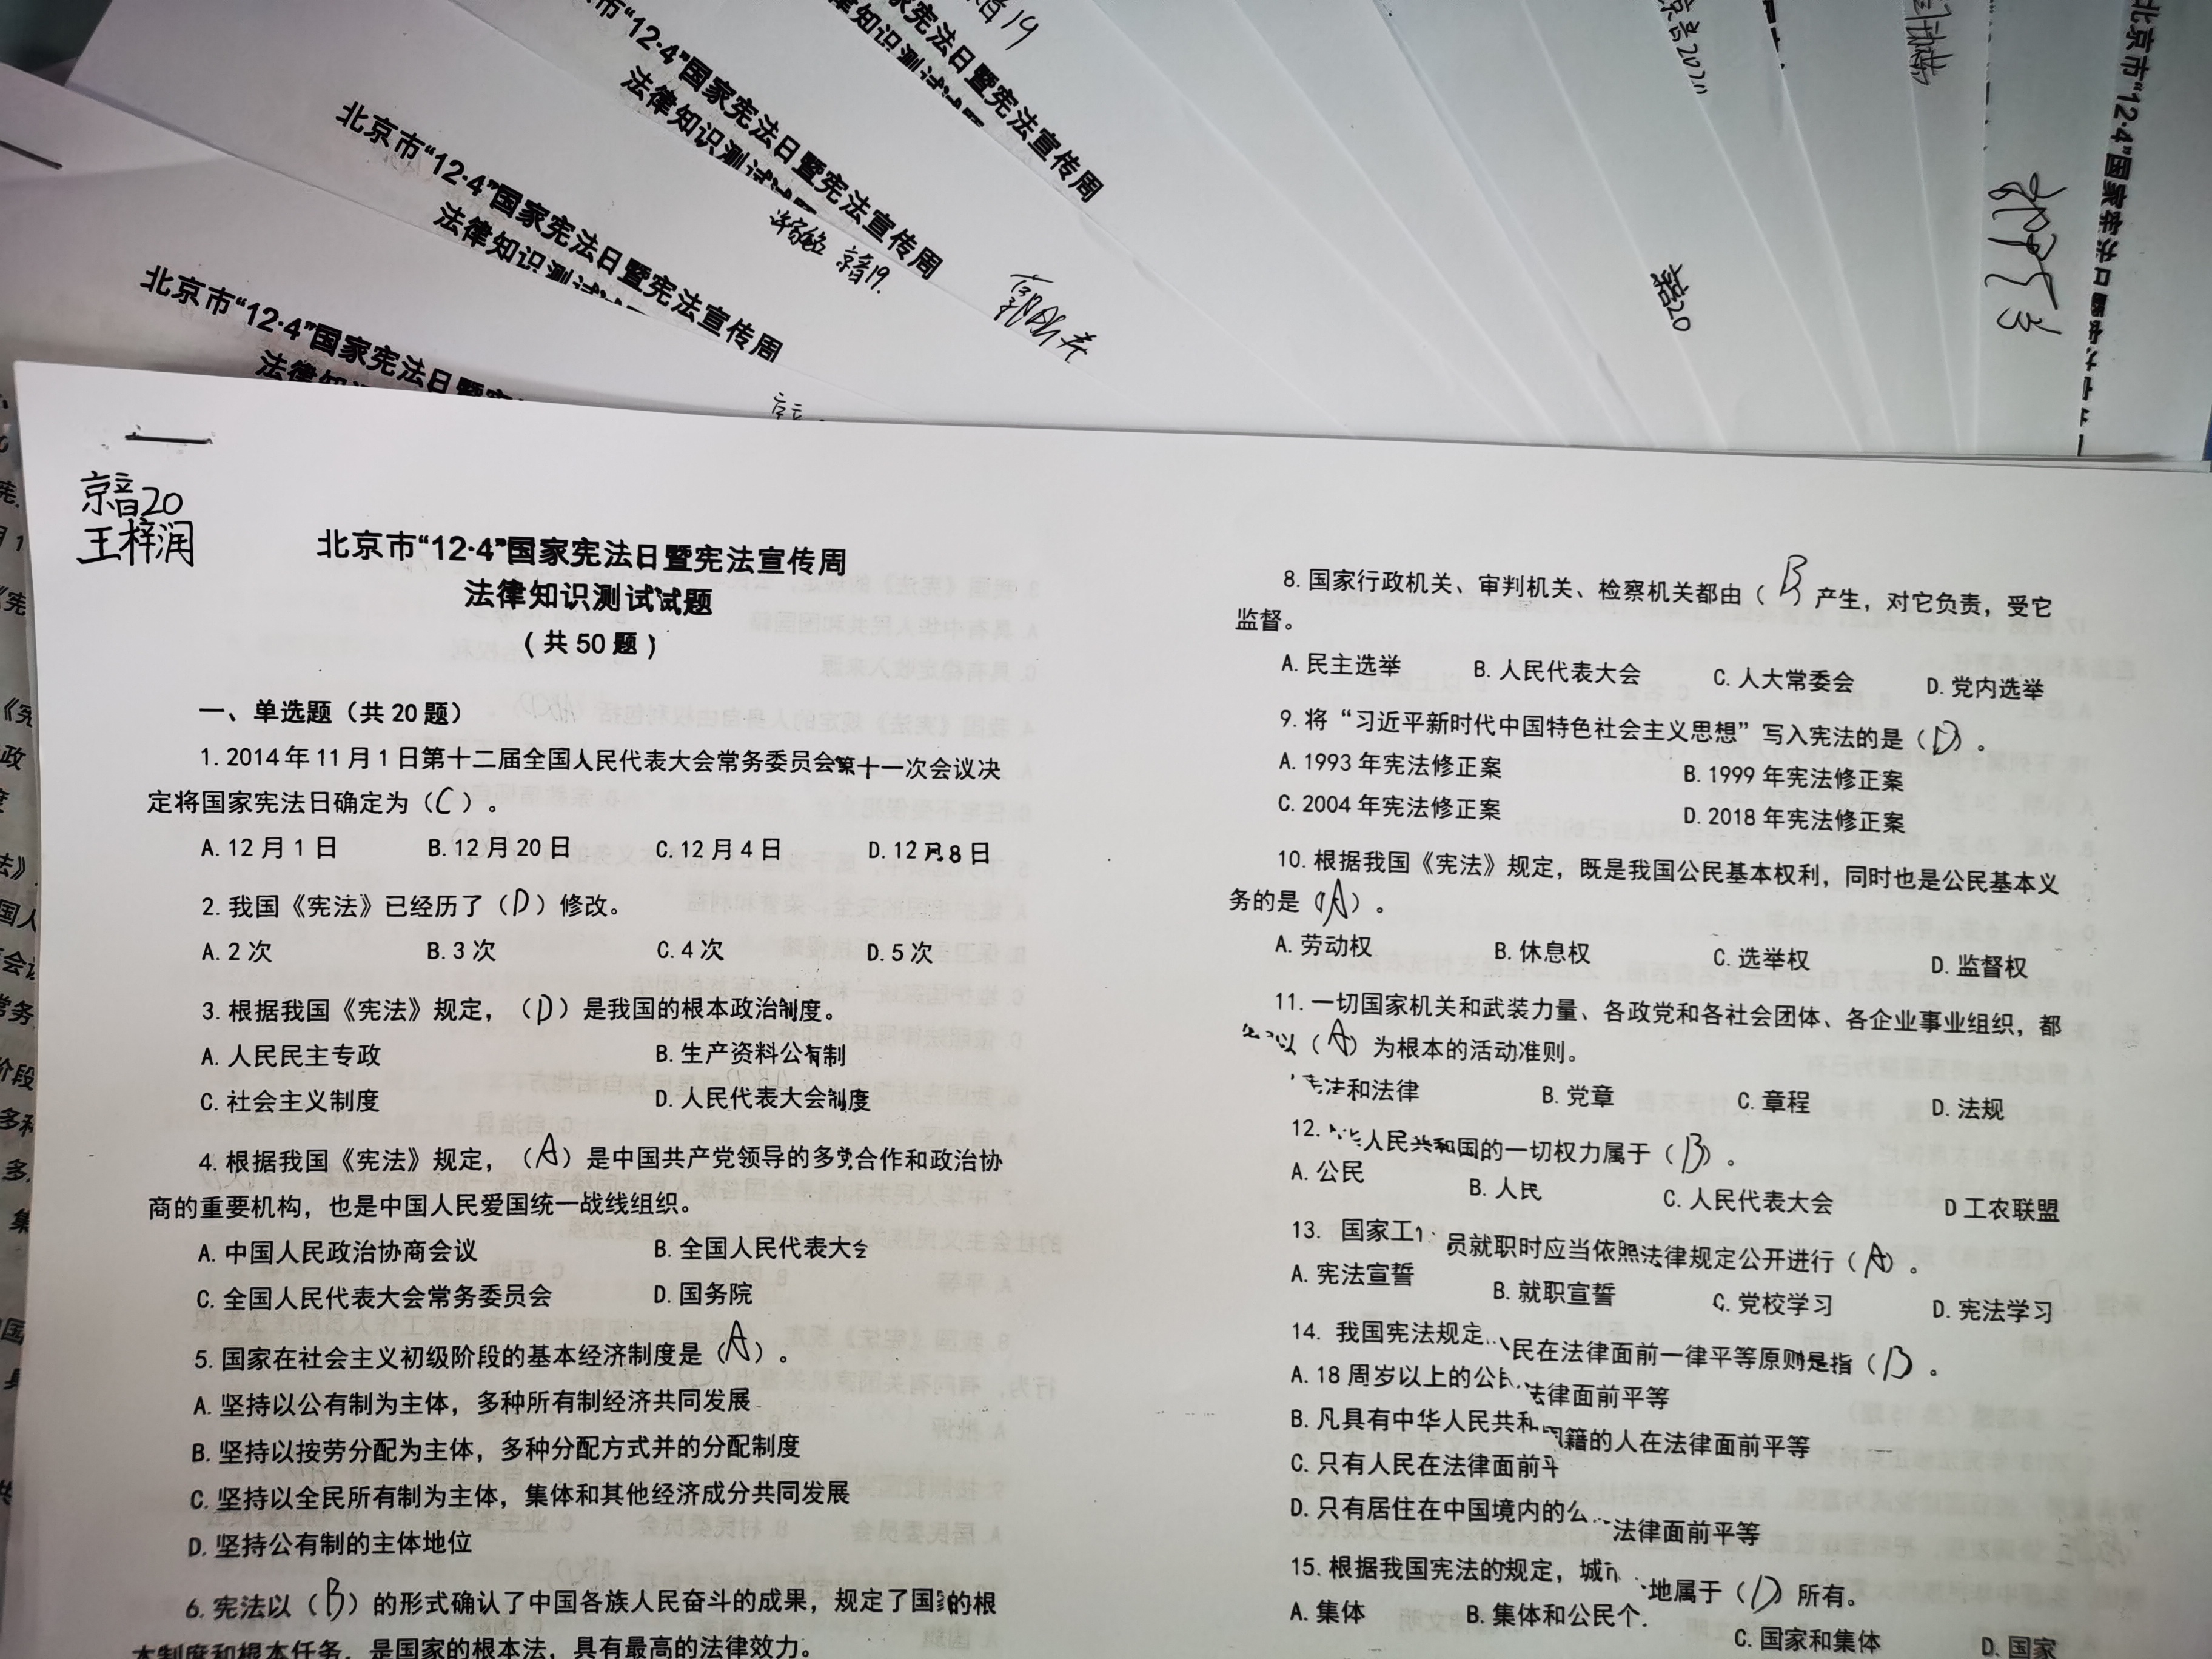 北京市“12·4”国家宪法日暨宪法宣传周
法律知识测试
北京市“12·4”国家宪法日暨宪法宣传周
法律知识测试
京音19.
北京市“12·4”国家宪法日暨
京音20
京音20
王梓润
北京市“12·4”国家宪法日暨宪法宣传周
法律知识测试试题
(共50题)
一、单选题(共20题)
1.2014年11月1日第十二届全国人民代表大会常务委员会第十一次会议决
定将国家宪法日确定为(C)。
A.12月1日 B.12月20日 C.12月4日 D.12月8日
2.我国《宪法》已经历了(D)修改。
A.2次 B.3次 C.4次 D.5次
3.根据我国《宪法》规定,(D)是我国的根本政治制度。
A.人民民主专政 B.生产资料公有制
C.社会主义制度 D.人民代表大会制度
4.根据我国《宪法》规定,(A)是中国共产党领导的多党合作和政治协
商的重要机构,也是中国人民爱国统一战线组织。
A.中国人民政治协商会议 B.全国人民代表大会
C.全国人民代表大会常务委员会 D.国务院
5.国家在社会主义初级阶段的基本经济制度是(A)。
A.坚持以公有制为主体,多种所有制经济共同发展
B.坚持以按劳分配为主体,多种分配方式并的分配制度
C.坚持以全民所有制为主体,集体和其他经济成分共同发展
D.坚持公有制的主体地位
6.宪法以(B)的形式确认了中国各族人民奋斗的成果,规定了国家的根
本制度和根本任务,是国家的根本法,具有最高的法律效力。
8.国家行政机关、审判机关、检察机关都由(B产生,对它负责,受它
监督。
A.民主选举 B.人民代表大会 C.人大常委会 D.党内选举
9.将“习近平新时代中国特色社会主义思想”写入宪法的是(D)。
A.1993年宪法修正案 B.1999年宪法修正案
C.2004年宪法修正案 D.2018年宪法修正案
10.根据我国《宪法》规定,既是我国公民基本权利,同时也是公民基本义
务的是(A)。
A.劳动权 B.休息权 C.选举权 D.监督权
11.一切国家机关和武装力量、各政党和各社会团体、各企业事业组织,都
以(A)为根本的活动准则。
宪法和法律 B.党章 C.章程 D.法规
12.人民共和国的一切权力属于(B)。
A.公民 B.人民 C.人民代表大会 D工农联盟
13.国家工 员就职时应当依照法律规定公开进行(A)。
A.宪法宣誓 B.就职宣誓 C.党校学习 D.宪法学习
14.我国宪法规定 民在法律面前一律平等原则是指(B。
A.18周岁以上的公民 法律面前平等
B.凡具有中华人民共和 国籍的人在法律面前平等
C.只有人民在法律面前平
D.只有居住在中国境内的公 法律面前平等
15.根据我国宪法的规定,城市 地属于(D)所有。
A.集体 B.集体和公民个 C.国家和集体 D.国家